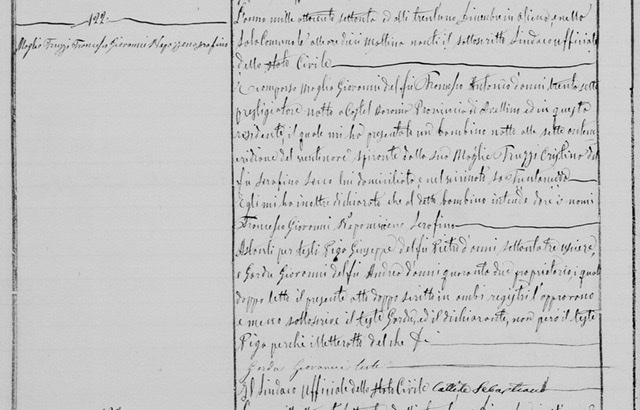 122
Moglia Truzzi Francesco Giovanni Nepomuceno Serafino
L'anno mille ottocento settanta ed alli trentuno Dicembre in nella
Sala Comunale alle ore dieci Mattina nanti il sottoscritto Sindaco uffiziale
dello Stato Civile
È comparso Moglia Giovanni del fu Francesco Antonio d'anni trenta sette
prestigiatore natto a Castel Baronia Provincia di Avellino ed in questa
residente, il quale mi ha presentato un bambino natto alle sette
meridiane del ventinove spirante dalla sua Moglie Truzzi Cristina del
fu Serafino seco lui domiciliata, e nel vicinato
Egli mi ha inoltre dichiarato che al detto bambino intende dare i nomi
Francesco Giovanni Nepomuceno Serafino
Astanti per testi Piga Giuseppe del fu Pietro d'anni settanta tre usciere,
e Gardu Giovanni del fu Andrea d'anni quaranta due proprietario, i quali
doppo letto il presente atto doppo scritto in ambi registri l'approvano
e meco sottoscrive il teste Gardu, ed il dichiarante, non però il teste
Piga perchè illetterato del che
Gardu Giovanni teste
Il Sindaco Uffiziale dello Stato Civile Sebastiano